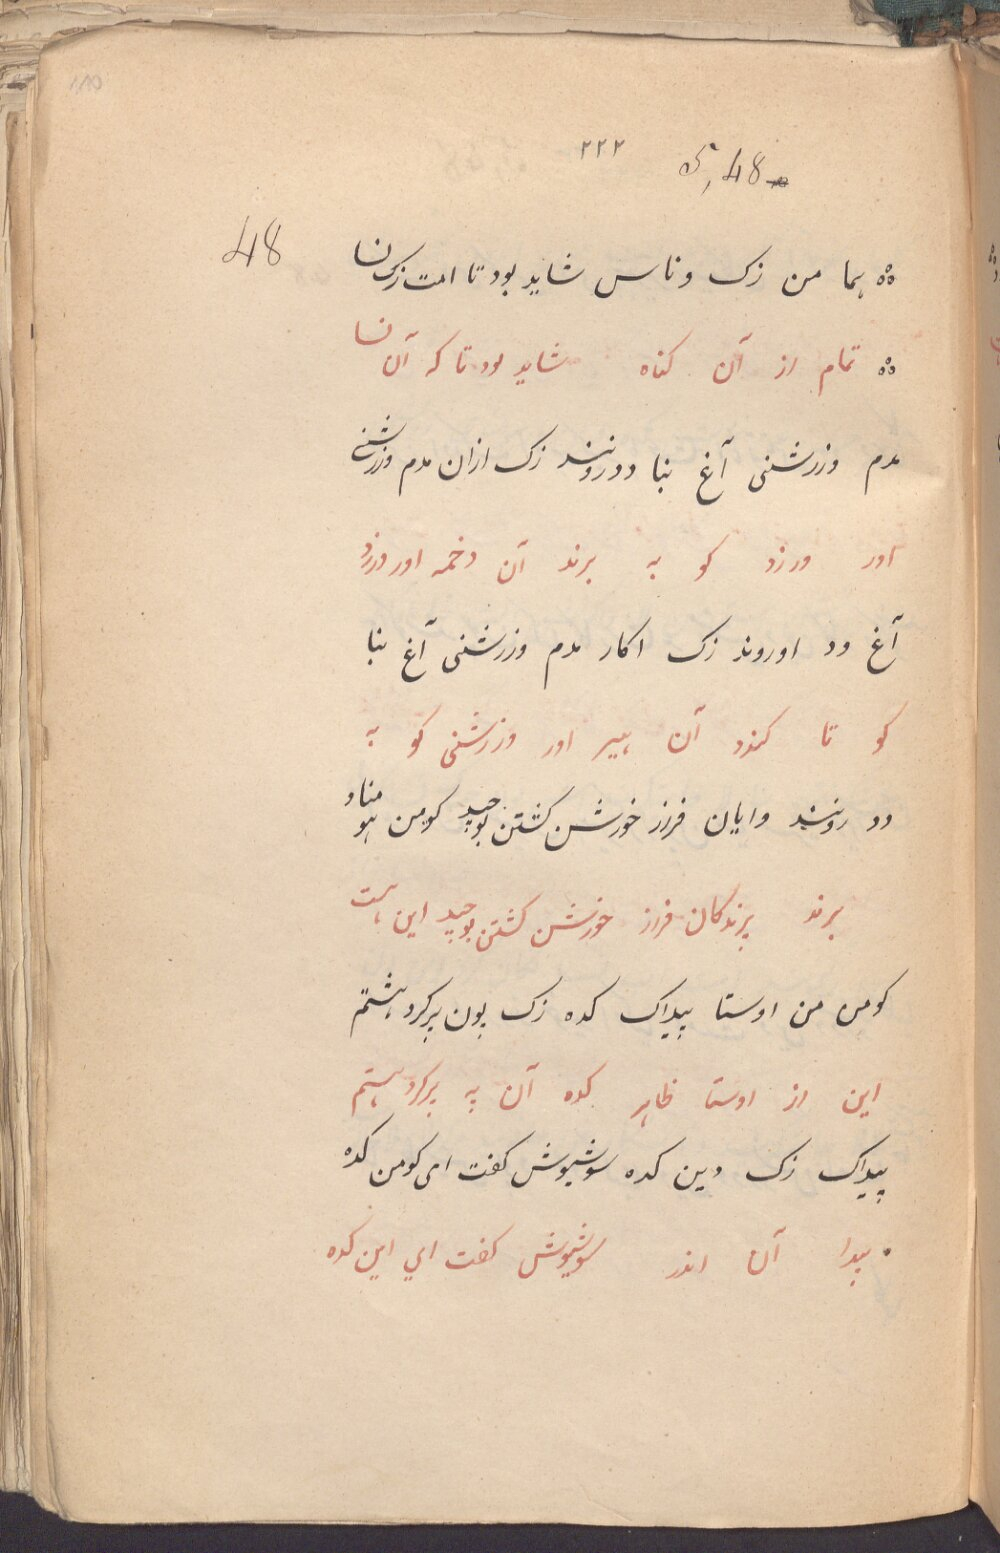 ۲۲۲ 5,48
48
ہما من زک وناس شاید بود تا امت زک نسا
تمام از آن کناه شاید بود تا که آن نسا
مدم وزرشنی آغ بنا ددرونند زک ازان مدم وزرشنی
اور ورزد کو به برند آن دخمه اور ورزد
آغ دد اوروند زک اکار مدم وزرشنی آغ بنا
کو تا کندد آن ہیر اور وزرشنی کو به
دد روںند وایان فرزز خورشن کشتن بوجید کومن ہومناد
برند پرندکان فراز خورشن کشتن بوجید این ہست
کومن من اوستا پیداک کده زک پون پرکرد ہشتم
این از اوستا ظاہر کده آن په پرکرد ہشتم
پیداک زک دین کده سوشیوش کفت ای کومن کده
پیدا آن اندر سوشیوش کفت اي این کده